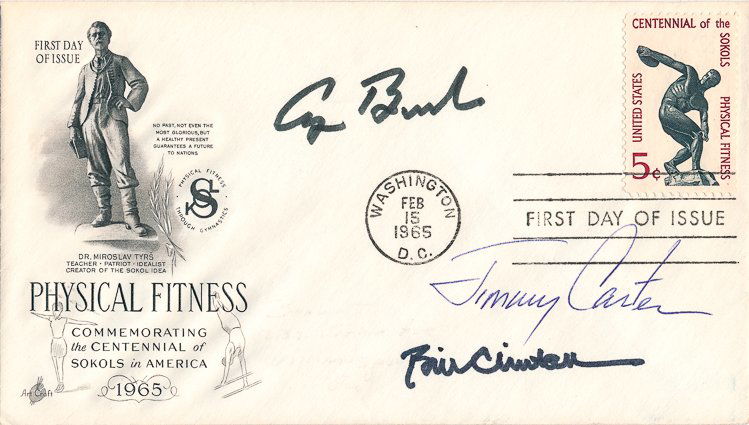 FIRST DAY
OF ISSUE
NO PAST, NOT EVEN THE
MOST GLORIOUS, BUT
A HEALTHY PRESENT
GUARANTEES A FUTURE
TO NATIONS
PHYSICAL FITNESS
THROUGH GYMNASTICS
S
DR. MIROSLAV TYRS
TEACHER · PATRIOT · IDEALIST
CREATOR OF THE SOKOL IDEA
PHYSICAL FITNESS
COMMEMORATING
the CENTENNIAL of
SOKOLS in AMERICA
1965
Art Craft
WASHINGTON
FEB
15
1965
D.C.
CENTENNIAL of the
SOKOLS
PHYSICAL FITNESS
UNITED STATES
5c
FIRST DAY OF ISSUE
Jimmy Carter